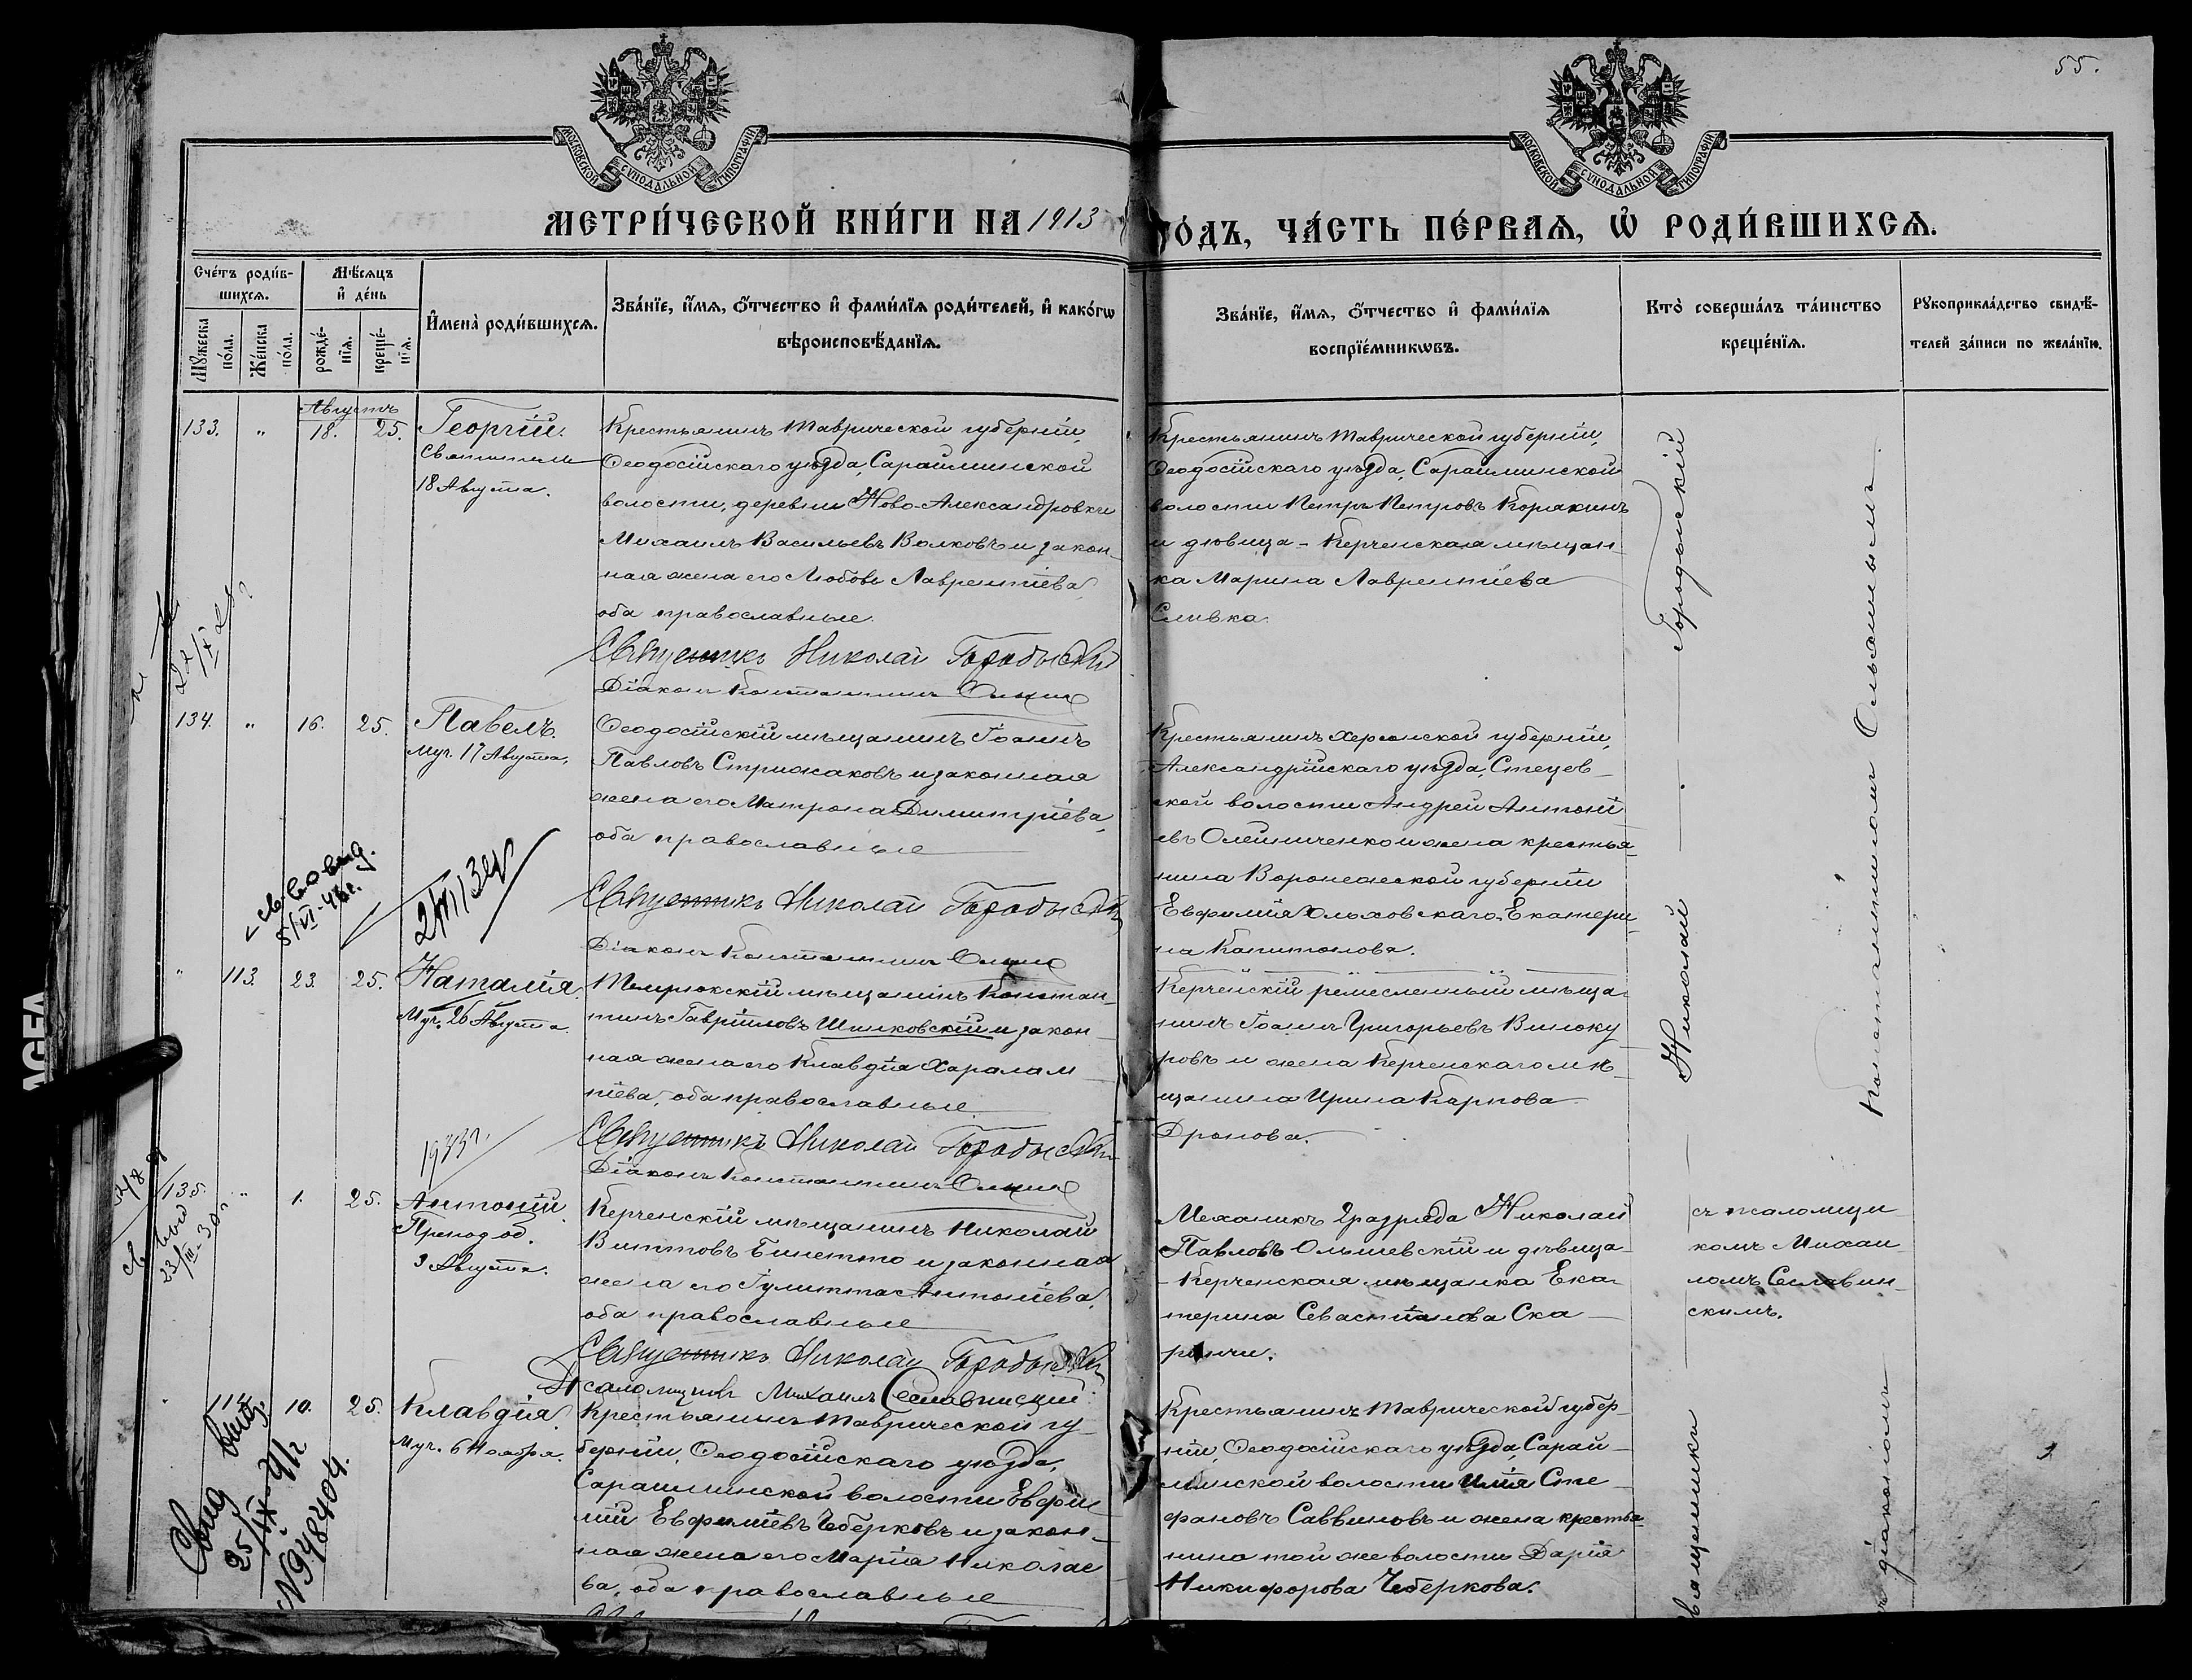 55.
МОСКОВСКОЙ СѴНОДАЛЬНОЙ ТИПОГРАФІИ
МОСКОВСКОЙ СѴНОДАЛЬНОЙ ТИПОГРАФІИ
МЕТРИ́ЧЕСКОЙ КНИ́ГИ НА 1913 ГО́ДЪ, ЧА́СТЬ ПЕ́РВАЯ, Ѡ РОДИ́ВШИХСЯ.
Сче́тъ роди́в-
шихся.
Мꙋ́жеска по́ла.
Же́нска по́ла.
Мѣ́сяцъ
и҆ де́нь
рожде́-
нїя.
креще́-
нїя.
И҆мена̀ роди́вшихся.
Зва́нїе, и҆́мя, ѻ҆́тчество и҆ фами́лїя роди́телей, и҆ како́гѡ
вѣроисповѣ́данїя.
Зва́нїе, и҆́мя, ѻ҆́тчество и҆ фами́лїя
воспрїе́мникѡвъ.
Кто̀ соверша́лъ та́инство
креще́нїя.
Рꙋкоприкла́дство свидѣ́-
телей за́писи по жела́нїю.
Августъ
133. " 18. 25. Георгій.
Святителя
18 Августа.
Крестьянинъ Таврической губерніи,
Ѳеодосійскаго уѣзда, Сарайминской
волости, деревни Ново-Александровки
Михаилъ Васильевъ Волковъ и закон-
ная жена его Любовь Лаврентіева,
оба православные.
Священникъ Николай Городыскій
Діаконъ Константинъ
Крестьянинъ Таврической губерніи,
Ѳеодосійскаго уѣзда, Сарайминской
волости Петръ Петровъ Коракинъ
и дѣвица - Керченская мѣщан-
ка Марина Лаврентіева
Сливка.
134. " 16. 25. Павелъ.
Муч. 17 Августа.
Ѳеодосійскій мѣщанинъ Іоаннъ
Павловъ Стрижаковъ и законная
жена его Матрона Димитріева,
оба православные
Священникъ Николай Городыскій
Діаконъ Константинъ
Крестьянинъ Херсонской губерніи,
Александрійскаго уѣзда, Стецов-
ской волости Андрей Антоні-
евъ Олейниченко и жена крестья-
нина Воронежской губерніи
Евфимія Ольховскаго Екатери-
на Капитонова.
" 113. 23. 25. Наталія.
Муч. 26 Августа.
Темрюкскій мѣщанинъ Констан-
тинъ Гавріиловъ Шилковскій и закон-
ная жена его Клавдія Харалам-
піева, оба православные
Священникъ Николай Городыскій
Діаконъ Константинъ
Керченскій ремесленный мѣща-
нинъ Іоаннъ Григорьевъ Виноку-
ровъ и жена Керченскаго мѣ-
щанина Ирина Карпова
Дронова.
1933 г.
135. " 1. 25. Антоній.
Преподоб.
3 Августа.
Керченскій мѣщанинъ Николай
Виттовъ Бинетто и законная
жена его Іулитта Антоніева,
оба православные
Священникъ Николай Городыскій
Псаломщикъ Михаилъ Сеславинскій
Механикъ 2 разряда Николай
Павловъ Ольшевскій и дѣвица-
-Керченская мѣщанка Ека-
терина Севастіанова Ска-
съ псаломщи-
комъ Михаи-
ломъ Сеславин-
скимъ.
114. 10. 25. Клавдія.
Муч. 6 Ноября.
Крестьянинъ Таврической гу-
берніи, Ѳеодосійскаго уѣзда,
Сарайминской волости Евфи-
мій Евфиміевъ Чеберковъ и закон-
ная жена его Марія Николае-
ва, оба православные
Крестьянинъ Таврической губер-
ніи, Ѳеодосійскаго уѣзда, Сарай-
минской волости Илія Сте-
фановъ Саввиновъ и жена крестья-
нина той же волости Дарія
Никифорова Чеберкова.
Священникъ Николай Городыскій
съ діакономъ Константиномъ
№948404.
AGFA